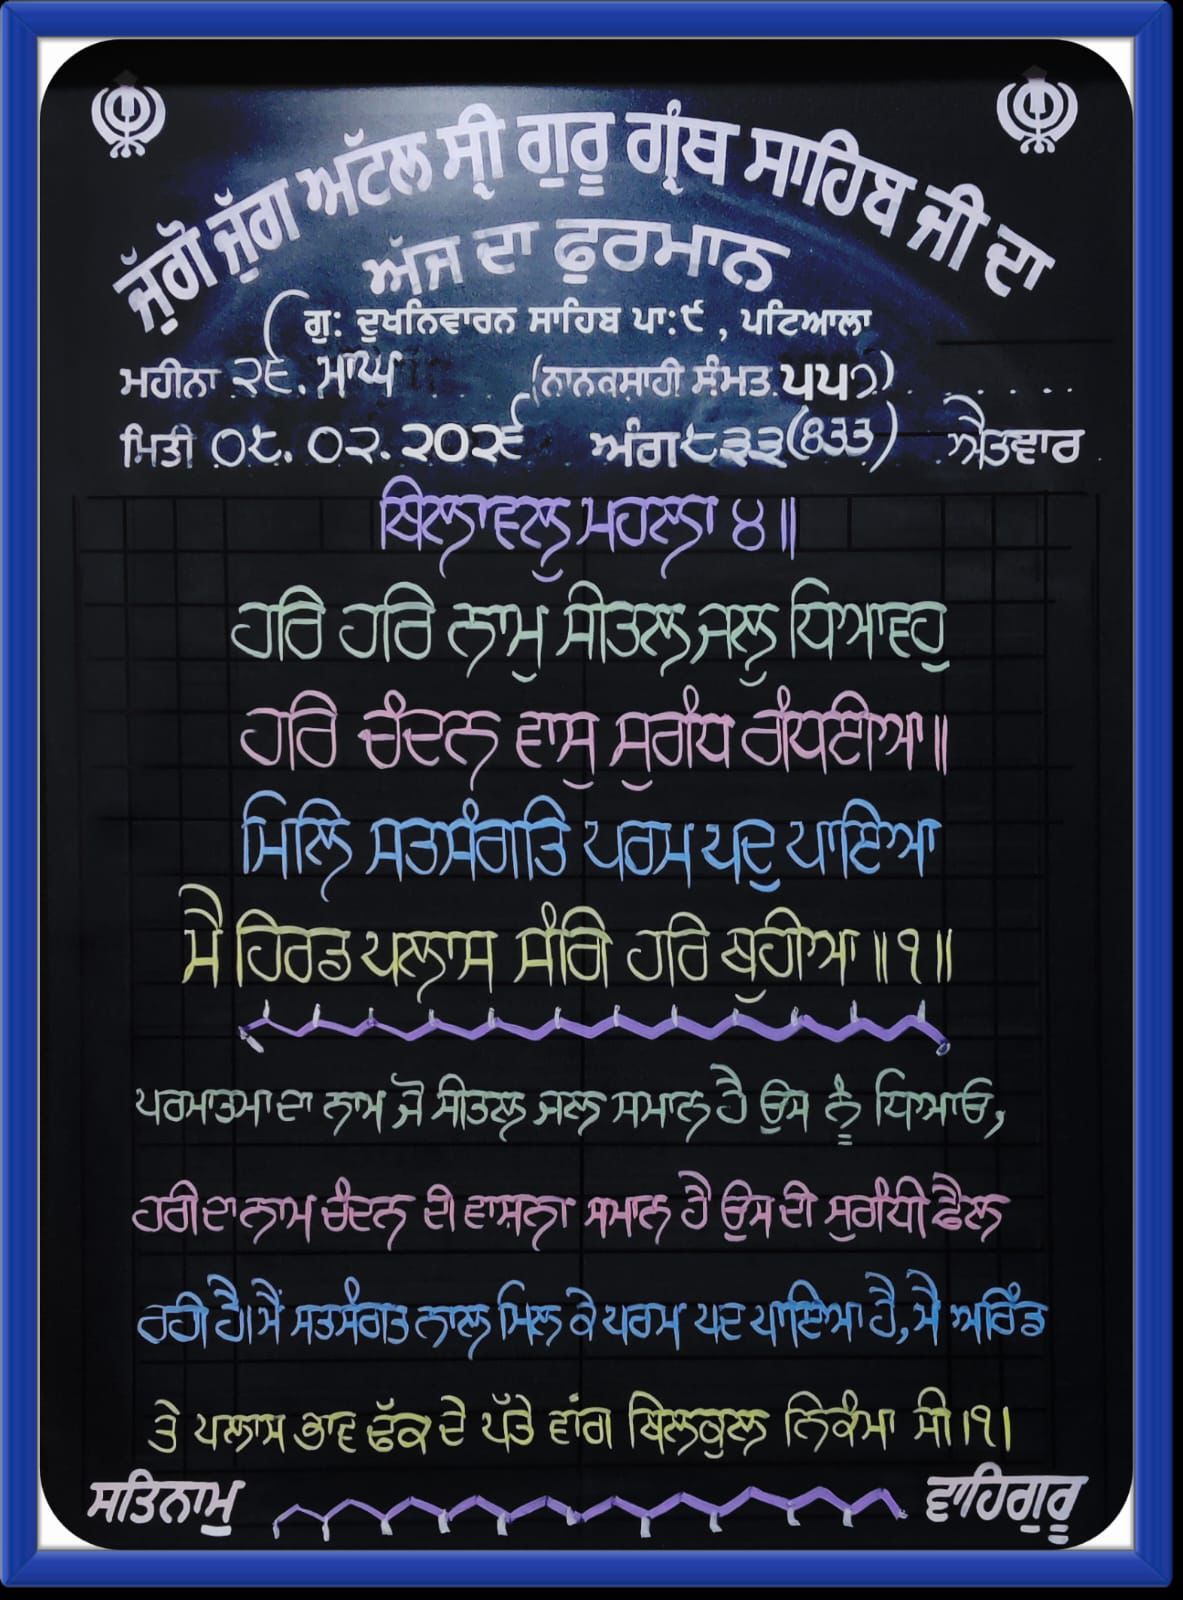 ਜੁੱਗੋ ਜੁੱਗ ਅਟੱਲ ਸ੍ਰੀ ਗੁਰੂ ਗ੍ਰੰਥ ਸਾਹਿਬ ਜੀ ਦਾ
ਅੱਜ ਦਾ ਫੁਰਮਾਨ
ਗੁ: ਦੁਖਨਿਵਾਰਨ ਸਾਹਿਬ ਪਾ:੯ , ਪਟਿਆਲਾ
ਮਹੀਨਾ ੨੬. ਮਾਘ (ਨਾਨਕਸ਼ਾਹੀ ਸੰਮਤ ੫੫੭)
ਮਿਤੀ ੦੮. ੦੨. ੨੦੨੬ ਅੰਗ ੮੩੩ (833) ਐਤਵਾਰ
ਬਿਲਾਵਲੁ ਮਹਲਾ ੪ ॥
ਹਰਿ ਹਰਿ ਨਾਮੁ ਸੀਤਲ ਜਲੁ ਧਿਆਵਹੁ
ਹਰਿ ਚੰਦਨ ਵਾਸੁ ਸੁਗੰਧ ਗੰਧਈਆ ॥
ਮਿਲਿ ਸਤਸੰਗਤਿ ਪਰਮ ਪਦੁ ਪਾਇਆ
ਮੈ ਹਿਰਡ ਪਲਾਸ ਸੰਗਿ ਹਰਿ ਬੁਹੀਆ ॥੧॥
ਪਰਮਾਤਮਾ ਦਾ ਨਾਮ ਜੋ ਸੀਤਲ ਜਲ ਸਮਾਨ ਹੈ ਉਸ ਨੂੰ ਧਿਆਓ,
ਹਰੀ ਦਾ ਨਾਮ ਚੰਦਨ ਦੀ ਵਾਸ਼ਨਾ ਸਮਾਨ ਹੈ ਉਸ ਦੀ ਸੁਗੰਧੀ ਫੈਲ
ਰਹੀ ਹੈ। ਮੈਂ ਸਤਸੰਗਤ ਨਾਲ ਮਿਲ ਕੇ ਪਰਮ ਪਦ ਪਾਇਆ ਹੈ, ਮੈ ਅਰਿੰਡ
ਤੇ ਪਲਾਸ ਭਾਵ ਢੱਕ ਦੇ ਪੱਤੇ ਵਾਂਗ ਬਿਲਕੁਲ ਨਿਕੰਮਾ ਸੀ।੧।
ਸਤਿਨਾਮੁ ਵਾਹਿਗੁਰੂ